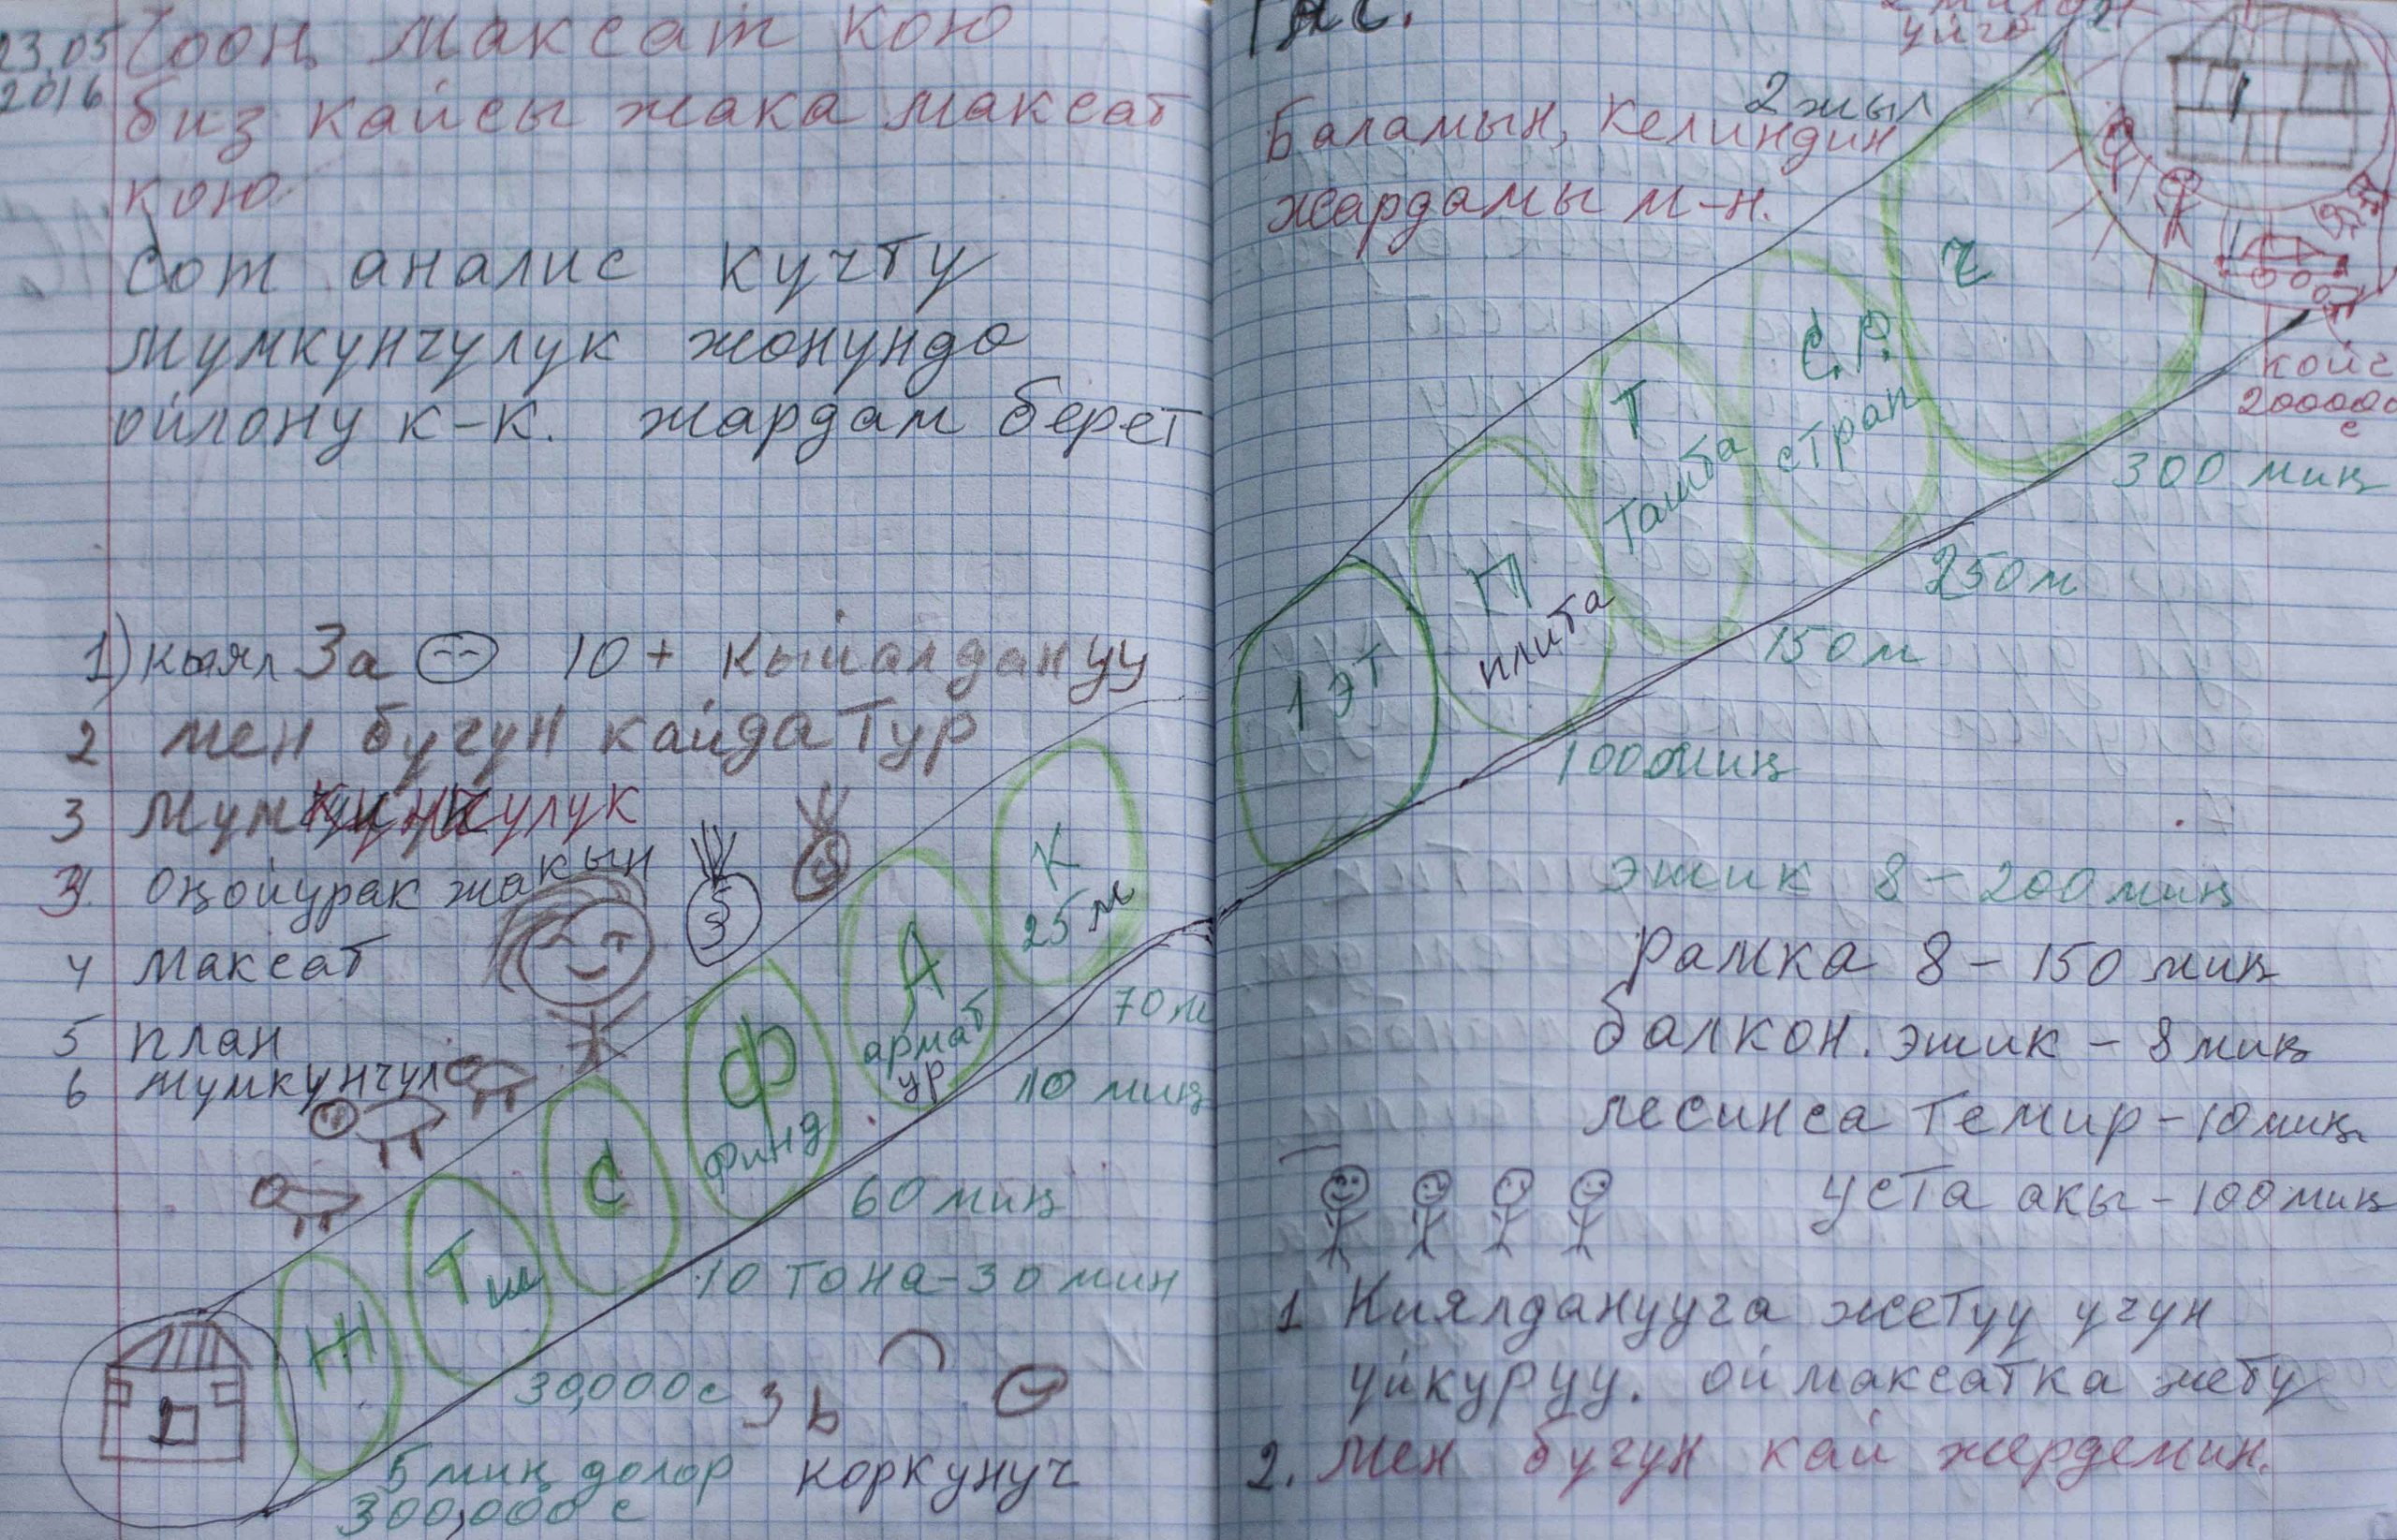 23.05
2016
Чоон максат кою
биз кайсы жака максат
кою
Сот аналис кучту
мумкунчулук жонундо
ойлону к-к. жардам берет
1) кыял 3а 10+ кыйалдануу
2 мен бугун кайда тур
3 мумкунчулук
3. оңойурак жакын
4 максат
5 план
6 мумкунчул
Ж
Тш
С
Ф
финд
А
армат
ур
К
25 м
70 м
110 миң
60 миң
10 тона-30 мин
30,000 с
5 миң долор
300,000 с
3 ь
коркунуч
2
уйго
2 жыл
Баламын, келиндин
жардамы м-н.
1
1 эт
П
плита
Т
С.Р.
страп
ч
койг
200000
с
300 миң
250 м
150 м
100 миң
эшик 8 - 200 миң
Рамка 8 - 150 миң
балкон. эшик - 8 миң
лесинса темир - 10 миң
уста акы - 100 миң
1 Киялданууга жетуу учун
уйкуруу. ой максатка жету
2. Мен бугун кай жердемин.